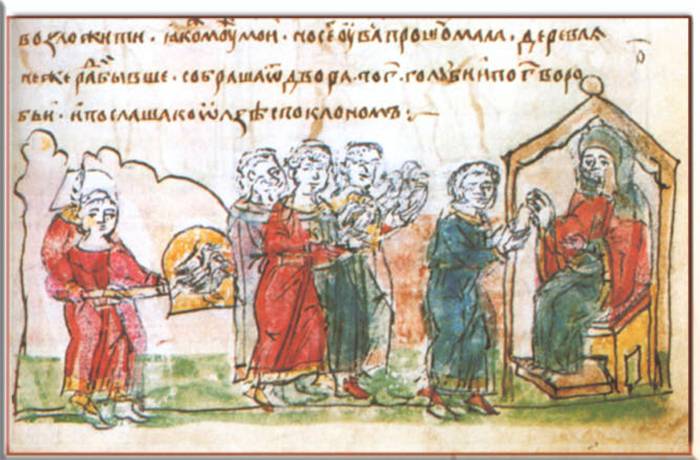 возложити · ꙗкомоужмои · носегоувапрошюмала · деревлѧ
нежерадибывше · собрашаѿдвора · пог҃ · голꙋбиипог҃воро
бьи · ипослашакоѡлзѣспоклономъ :~